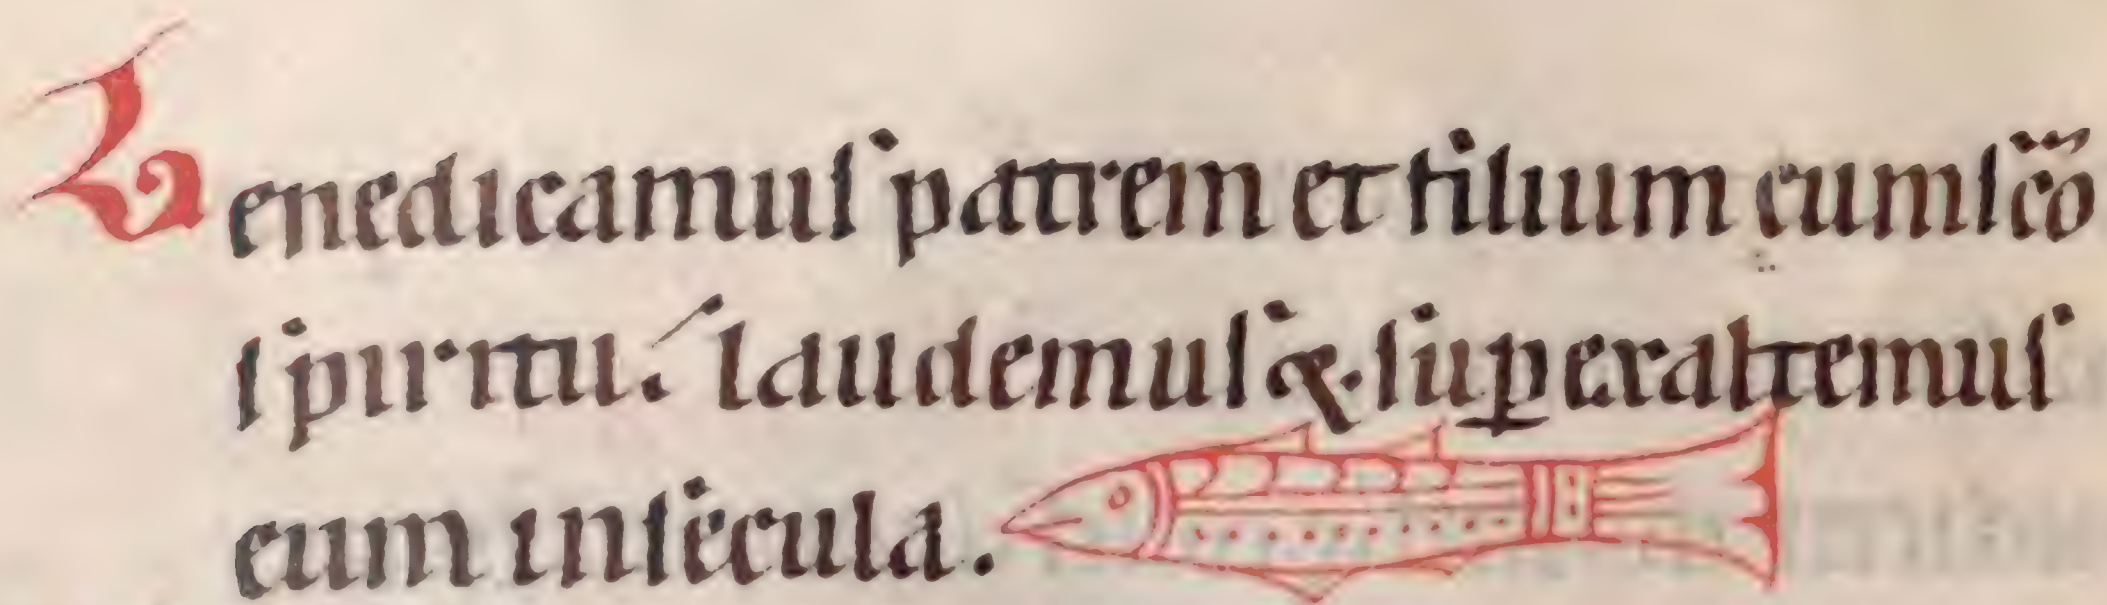 Benedicamus patrem et filium cum sc̄o
spiritu. laudemus q. sup̱ exaltemus
eum in secula.